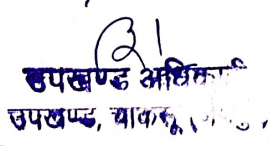 उपखण्ड अधिकारी
उपखण्ड, चाकसू